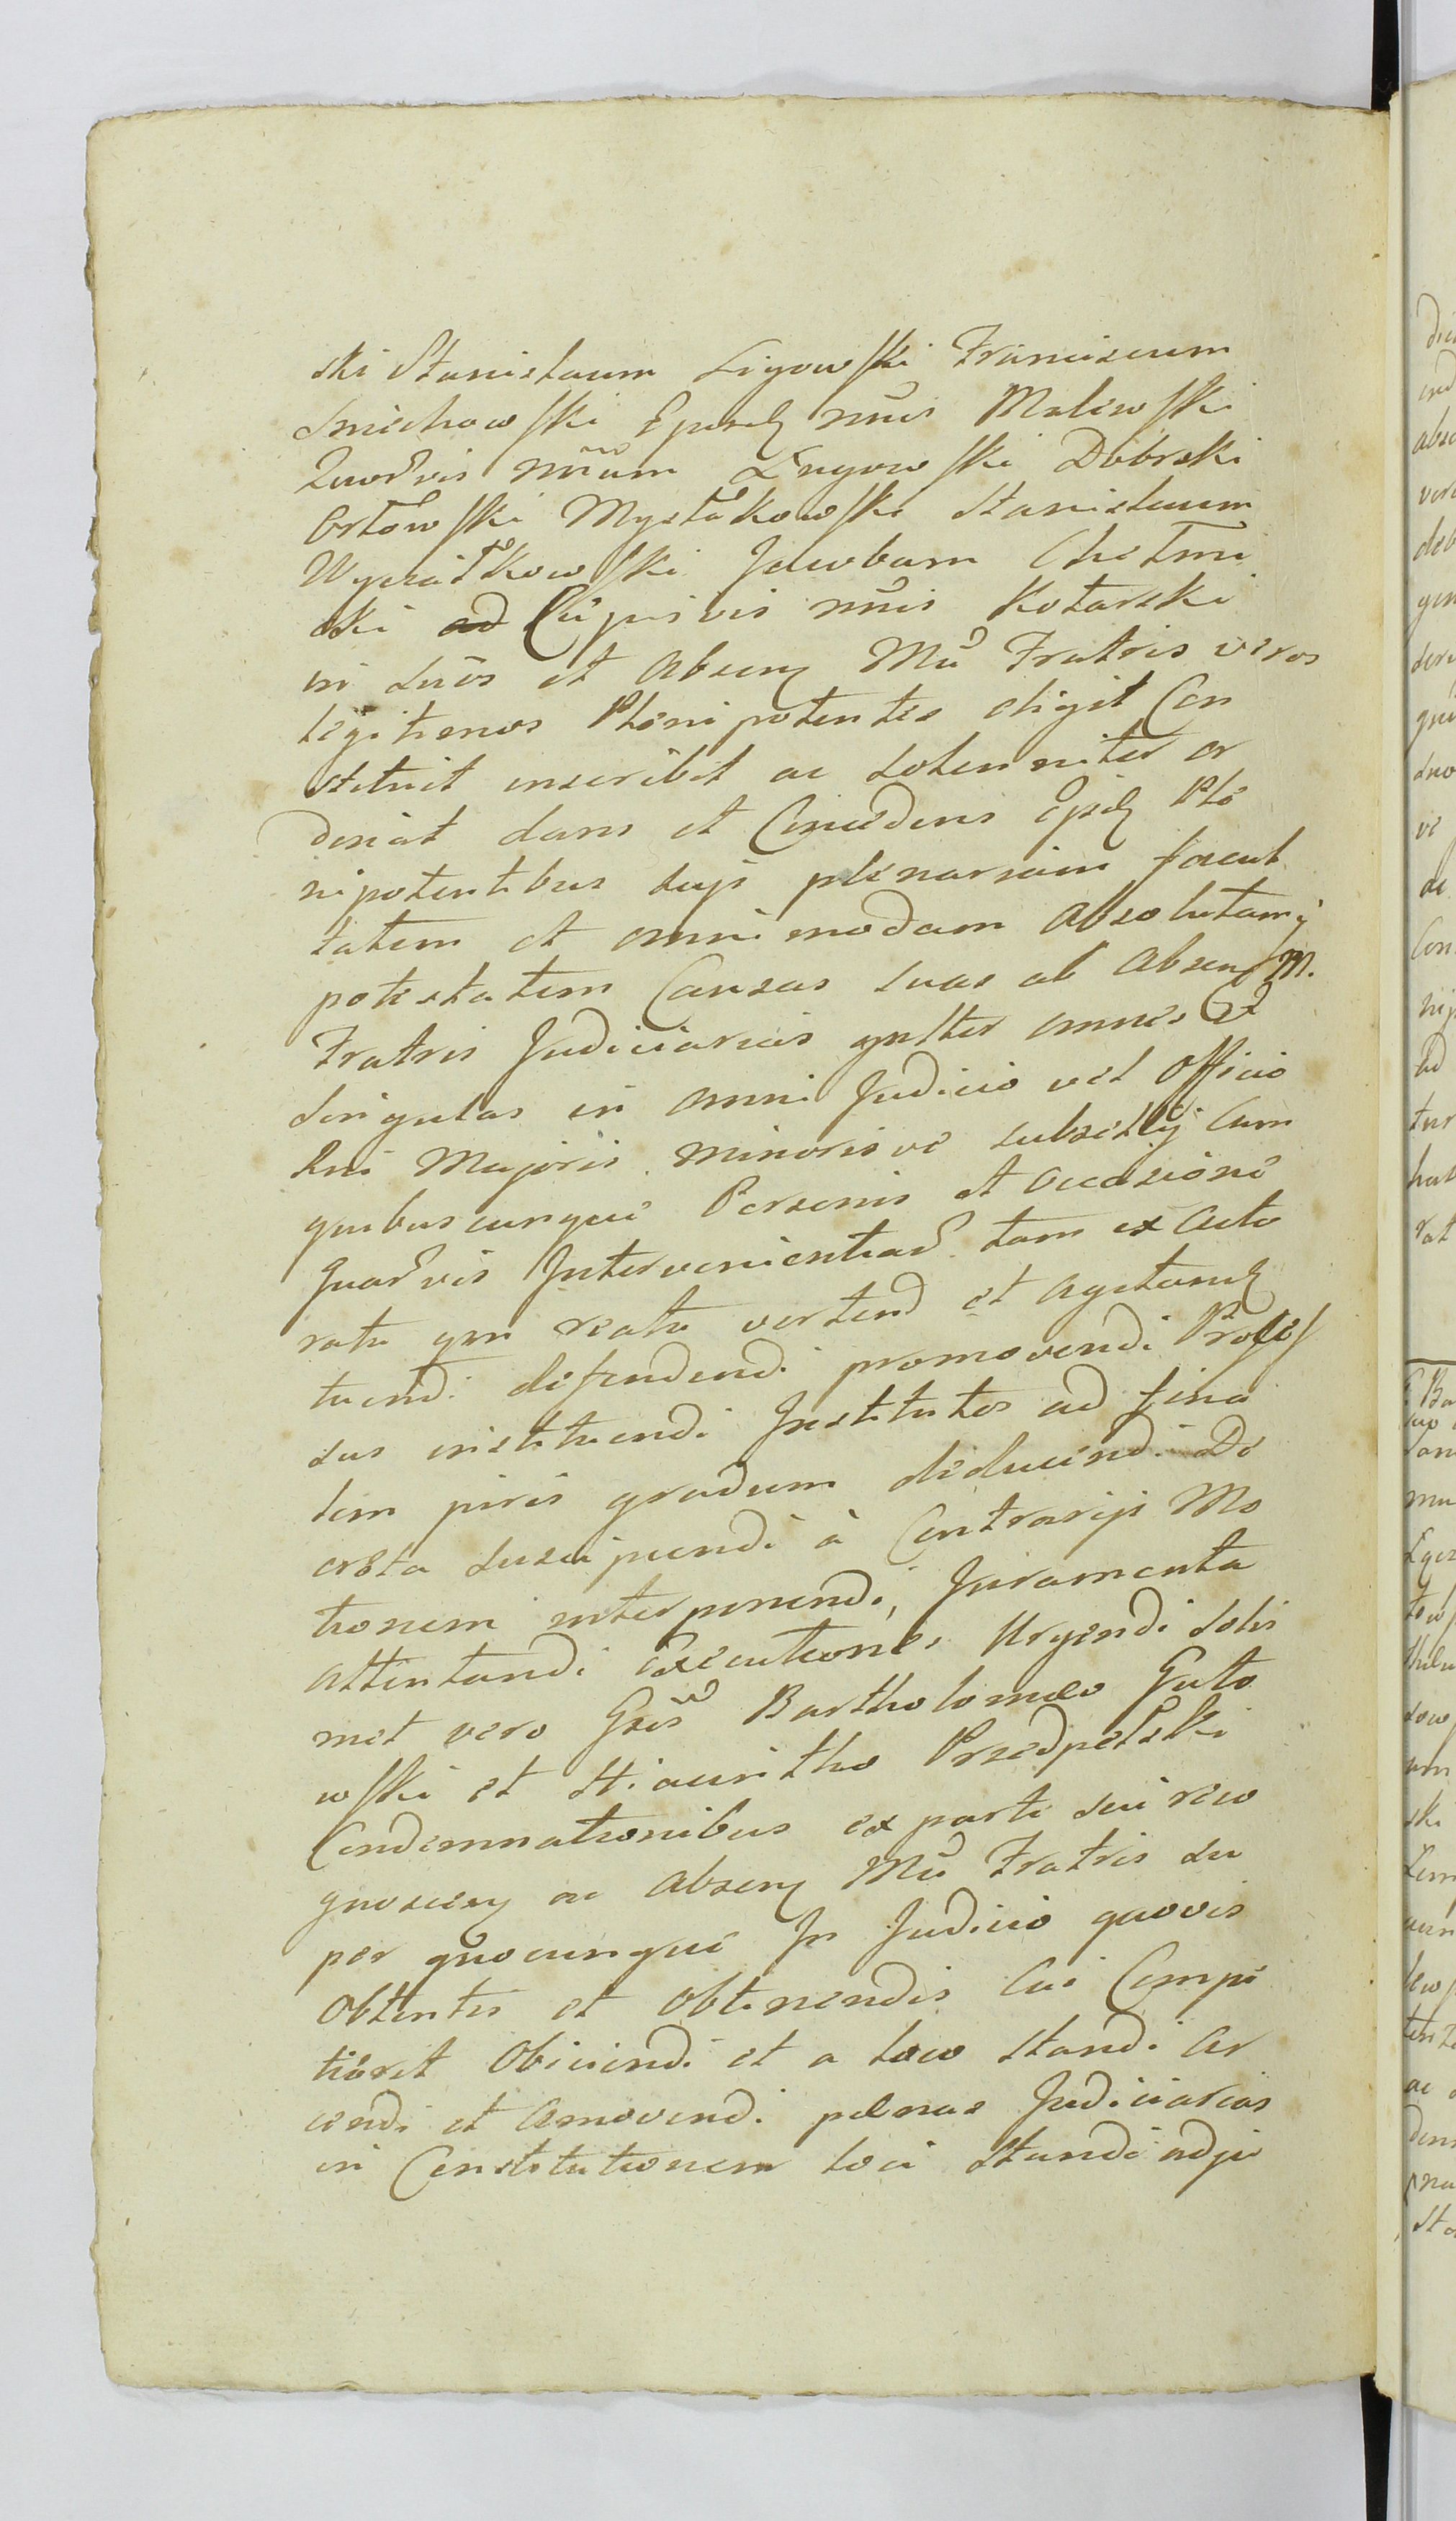 ski Stanisłaum Ligowski Franciscum
Smichowski Ejusdȝ nnis Malewski
Quorvis nnum Ługowski Dobrski
Orłowski Mystakowski Stanisłaum
Wyczałkowski Jacobum Chełmi
ski Cujusvis nnis Kotarski
in suos et Absenȝ Mu Fratris veros
legitimos Plenipotentes eligit Con
stituit inscribit ac solemniter or
dinat dans et Concedens Ejusdȝ Ple
nipotentibus suis plenariam facul
tatem et omnimodam absolutamq
potestatem Causas suas ac Absenȝ M.
Fratris Judiciarias gnlter omnes et
singulas in omni Judicio vel Officio
Rni Majoris minorisve subsellij cum
quibuscunque Personis et occasione
quarvis Intervenientiad tam ex Acto
ratu qm reatu vertend et agitandȝ
tuendi defendendi promovendi Proces
sus instituendi Institutos ad fina
lem juris gradum deducendi De
creta suscipiendi à Contrarijs Mo
tionem interponendi, Juramenta
attentandi Executiones urgendi solis
met vero Gsis Bartholomæo Guto
wski et Hiacintho Przedpełski
Condemnationibus ex parte sui reco
gnoscenȝ ac Absenȝ Mu Fratris su
per quocunque In Judicio quovis
Obtentis et obtinendis Cui Compe
tierit Obiciendi et a loco standi Ar
cendi et Amovendi pœnas Judiciarias
in Constitutionem loci standi adju